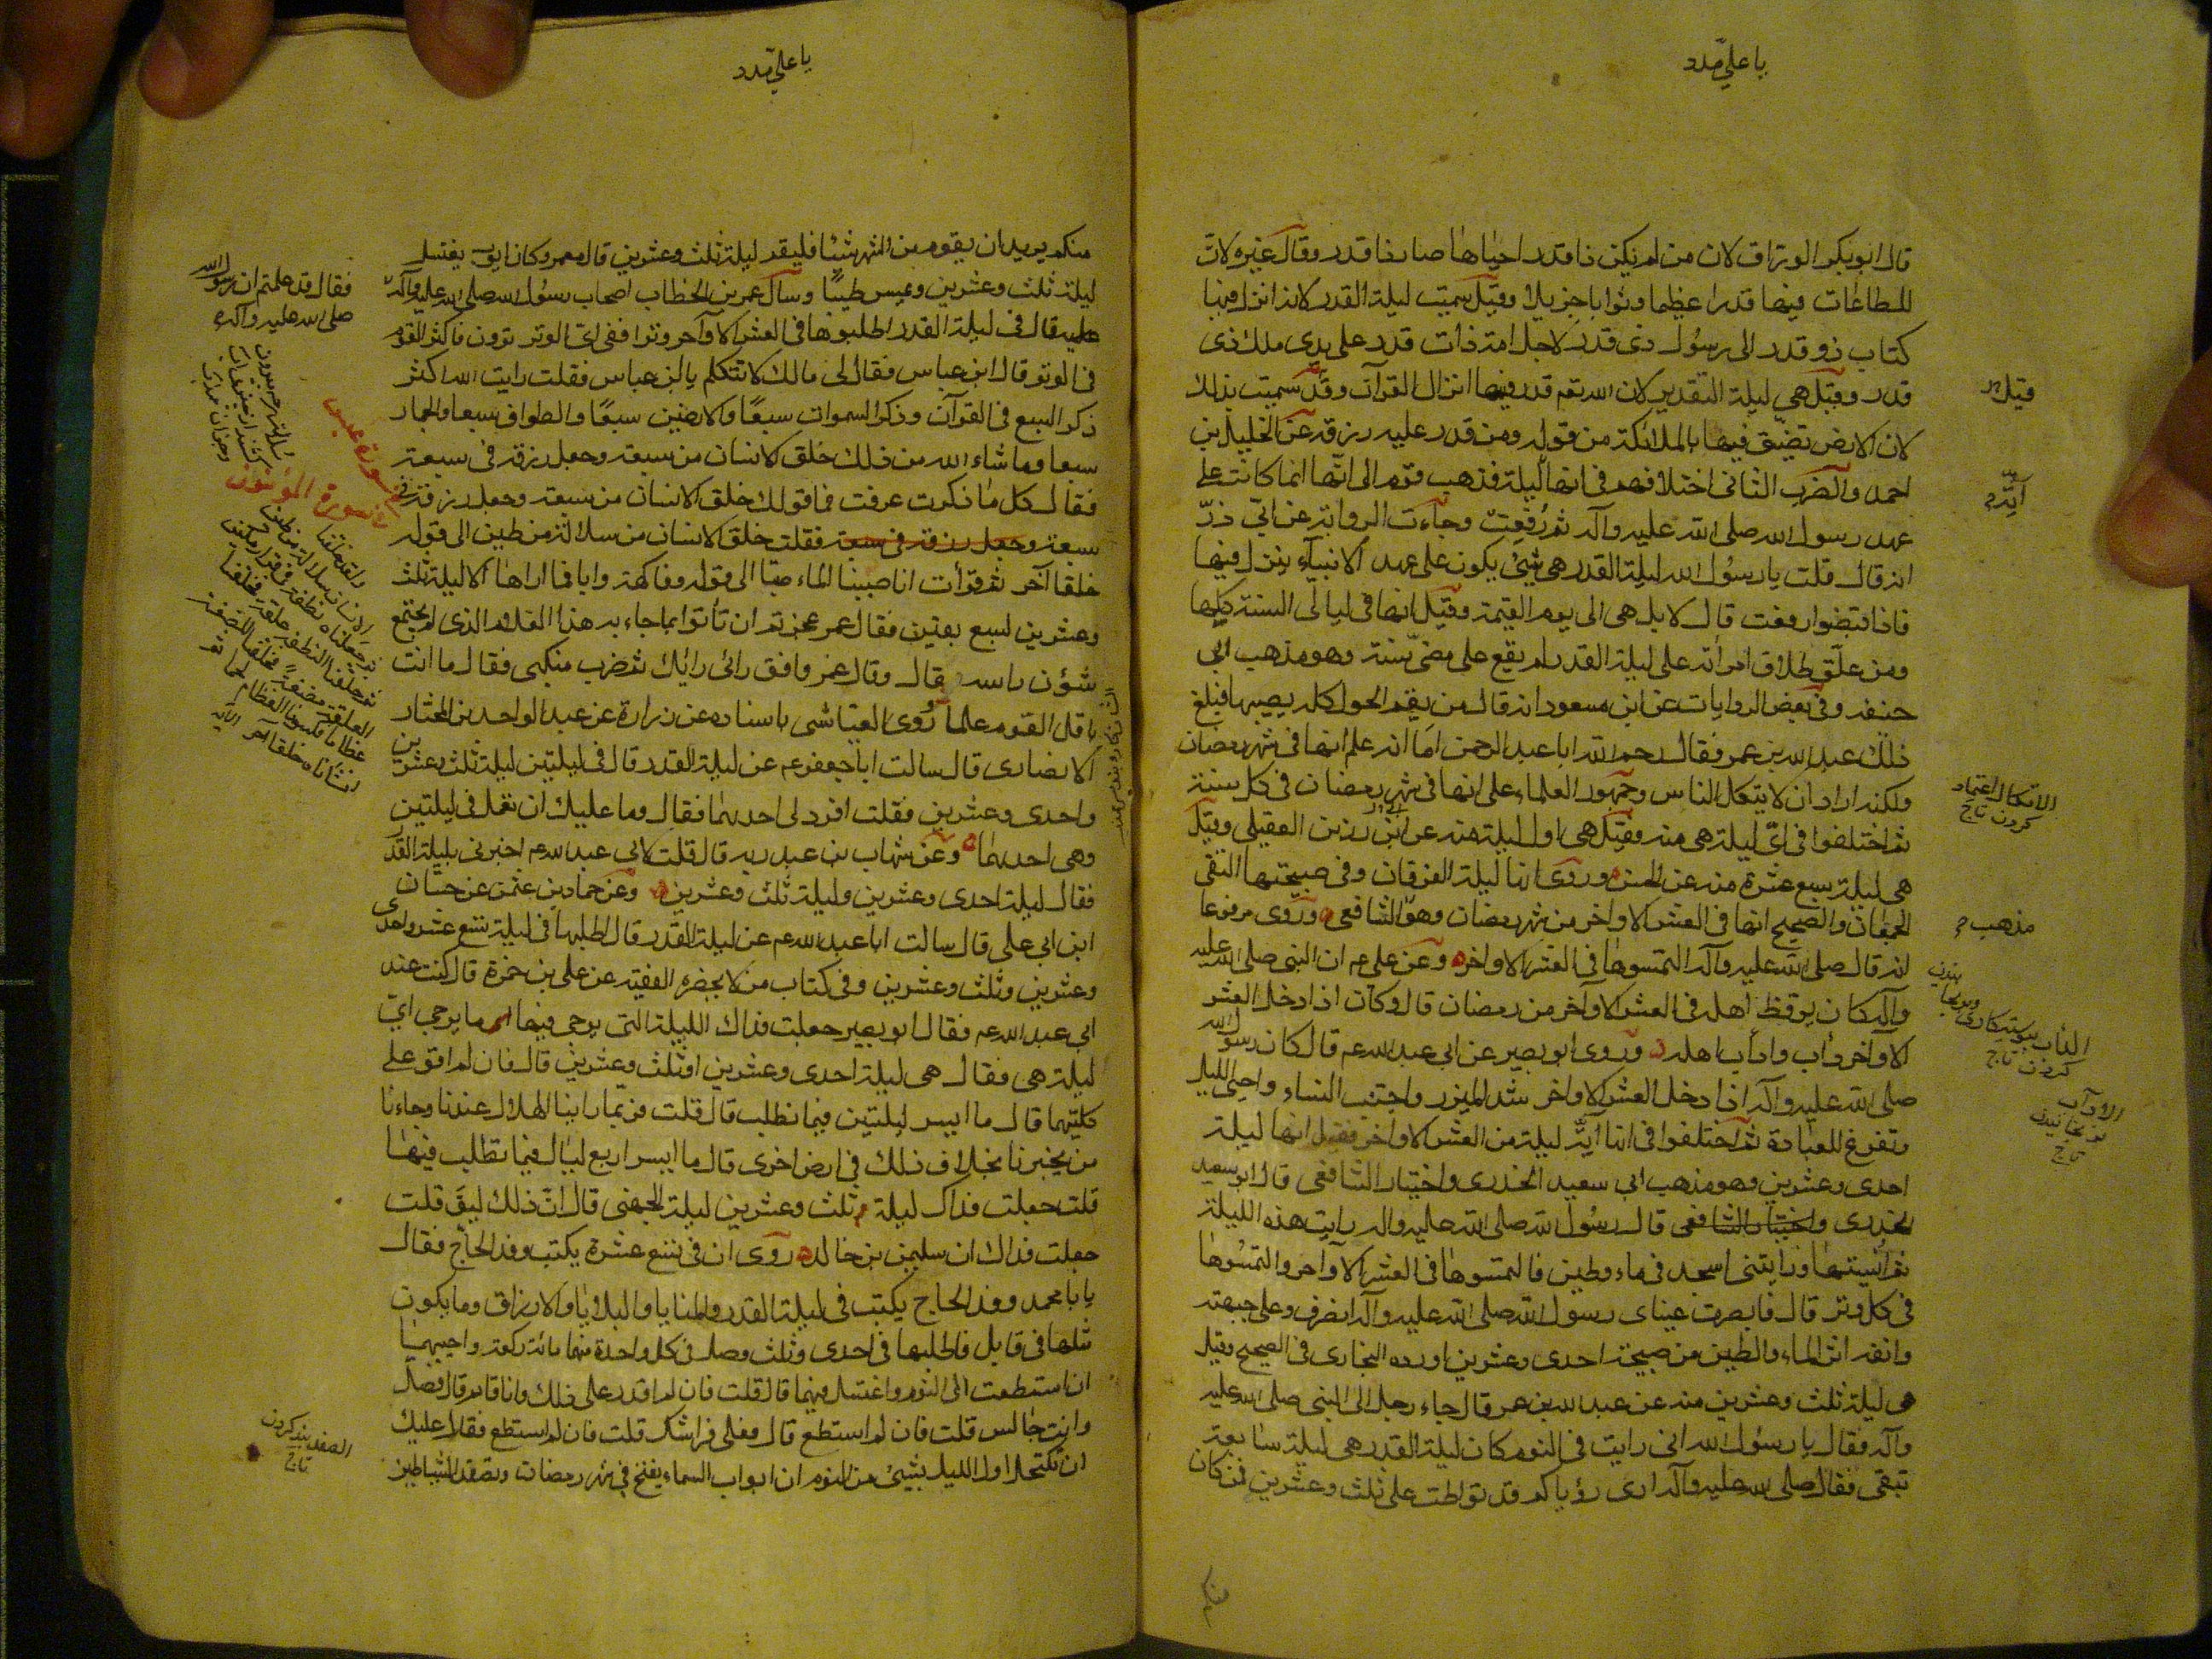 يا علي مدد
قال ابو بكر الوراق لان من لم يكن ذا قدر احياها صار ذا قدر وقال غيره لان
للطاعات فيها قدرا عظيما وثوابا جزيلا وقيل سميت ليلة القدر لانه انزل فيها
كتاب ذو قدر الى رسول ذى قدر لاجل امة ذات قدر على يدى ملك ذى
قدر وقيل هى ليلة التقدير لان الله تعم قدر فيها انزال القرآن وقيل سميت بذلك
لان الارض تضيق فيها بالملائكة من قوله ومن قدر عليه رزقه عن الخليل بن
احمد والضرب الثانى اختلافهم فى انها ليلة فذهب قوم الى انها انما كانت على
عهد رسول الله صلى الله عليه وآله ثم رفعت وجاءت الرواية عن ابى ذر
انه قال قلت يا رسول الله ليلة القدر هى شىء يكون على عهد الانبياء ينزل فيها
فاذا قبضوا رفعت قال لا بل هى الى يوم القيمة وقيل انها فى ليالى السنة كلها
ومن علق طلاق امراته على ليلة القدر لم يقع على مضى سنة وهو مذهب ابى
حنيفه وفى بعض الروايات عن ابن مسعود انه قال من يقم الحول كله يصيبها فبلغ
ذلك عبد الله بن عمر فقال رحم الله ابا عبد الرحمن اما انه علم انها فى شهر رمضان
ولكنه اراد ان لا يتكل الناس وجمهور العلماء على انها فى شهر رمضان فى كل سنة
ثم اختلفوا فى اى ليلة هى منه فقيل هى اول ليلة منه عن ابن رزين العقيلى وقيل
هى ليلة سبع عشرة منه عن الحسن وروى انها ليلة الفرقان وفى صبيحتها التقى
الجمعان والصحيح انها فى العشر الاواخر من شهر رمضان وهو الشافعى وروى مرفوعا
انه قال صلى الله عليه وآله التمسوها فى العشر الاواخر وعن على عم ان النبى صلى الله عليه
وآله كان يوقظ اهله فى العشر الاواخر من رمضان قال وكان اذا دخل العشر
الاواخر دأب وادأب اهله وروى ابو بصير عن ابى عبد الله عم قال كان رسول الله
صلى الله عليه وآله اذا دخل العشر الاواخر شد المئزر واجتنب النساء واحيى الليل
وتفرغ للعبادة ثم اختلفوا فى انها اية ليلة من العشر الاواخر فقيل انها ليلة
احدى وعشرين وهو مذهب ابى سعيد الخدرى واختيار الشافعى قال ابو سعيد
الخدرى واختيار الشافعى قال رسول الله صلى الله عليه واله رايت هذه الليلة
ثم انسيتها ورايتنى اسجد فى ماء وطين فالتمسوها فى العشر الاواخر والتمسوها
فى كل وتر قال فابصرت عيناى رسول الله صلى الله عليه وآله انصرف وعلى جبهته
وانفه اثر الماء والطين من صبيحة احدى وعشرين اورده البخارى فى الصحيح وقيل
هى ليلة ثلث وعشرين منه عن عبد الله بن عمر قال جاء رجل الى النبى صلى الله عليه
وآله فقال يا رسول الله انى رايت فى النوم كان ليلة القدر هى ليلة سابعة
تبقى فقال صلى الله عليه وآله ارى رؤياكم قد تواطت على ثلث وعشرين فمن كان
منكم
قيل
آية
الاتكال اعتماد
كردن تاج
مذهب
كردن تاج
الادآب
تاج
يا علي مدد
منكم يريد ان يقوم من الشهر شيئا فليقم ليلة ثلث وعشرين قال معمر وكان ايوب يغتسل
ليلة ثلث وعشرين ويمس طيبا وسأل عمر بن الخطاب اصحاب رسول الله صلى الله عليه وآله
عليه قال فى ليلة القدر اطلبوها فى العشر الاواخر وترا ففى اى الوتر ترون فاكثر القوم
فى الوتر قال ابن عباس فقال لى مالك لا تتكلم يابن عباس فقلت رايت الله اكثر
ذكر السبع فى القرآن وذكر السموات سبعا والارضين سبعا والطواف سبعا والجمار
سبعا وما شاء الله من ذلك خلق الانسان من سبعة وجعل رزقه فى سبعة
فقال كل ما ذكرت عرفت فما قولك خلق الانسان من سبعة وجعل رزقه فى
سبعة وجعل رزقه فى سبعة فقلت خلق الانسان من سلالة من طين الى قوله
خلقا آخر ثم قرأت انا صببنا الماء صبا الى قوله وفاكهة وابا فما اراها الا ليلة ثلث
وعشرين لسبع بقين فقال عمر عجزتم ان تأتوا بما جاء به هذا الغلام الذى لم يجتمع
شؤن راسه قال وقال عمر وافق رائى رايك ثم ضرب منكبى فقال ما انت
باقل القوم علما وروى العياشى باسناده عن زرارة عن عبد الواحد بن المختار
الانصارى قال سالت ابا جعفر عم عن ليلة القدر قال فى ليلتين ليلة ثلث وعشرين
واحدى وعشرين فقلت افرد لى احديهما فقال وما عليك ان تعمل فى ليلتين
وهى احديهما وعن شهاب بن عبد ربه قال قلت لابى عبد الله عم اخبرنى بليلة القدر
فقال ليلة احدى وعشرين وليلة ثلث وعشرين وعن حماد بن عثمن عن حسان
ابن ابى على قال سالت ابا عبد الله عم عن ليلة القدر قال اطلبها فى ليلة تسع عشر واحدى
وعشرين وثلث وعشرين وفى كتاب من لا يحضره الفقيه عن على بن حمزة قال كنت عند
ابى عبد الله عم فقال ابو بصير جعلت فداك الليلة التى يرجى فيها ما يرجى اى
ليلة هى فقال هى ليلة احدى وعشرين او ثلث وعشرين قال فان لم اقو على
كلتيهما قال ما ايسر ليلتين فيما تطلب قال قلت فربما راينا الهلال عندنا وجاءنا
من يخبرنا بخلاف ذلك فى ارض اخرى قال ما ايسر اربع ليال فيما تطلب فيها
قلت جعلت فداك ليلة ثلث وعشرين ليلة الجهنى قال ان ذلك ليق قلت
جعلت فداك ان سليمن بن خالد روى ان فى تسع عشرة يكتب وفد الحاج فقال
يا با محمد وفد الحاج يكتب فى ليلة القدر والمنايا والبلايا والارزاق وما يكون
مثلها فى قابل فاطلبها فى احدى وثلث وصل فى كل واحدة منهما مائة ركعة واحيهما
ان استطعت الى النور واغتسل فيهما قال قلت فان لم اقدر على ذلك وانا قائم قال فصل
وانت جالس قلت فان لم استطع قال فعلى فراشك قلت فان لم استطع فقال لا عليك
ان تكتحل اول الليل بشىء من النوم ان ابواب السماء يفتح فى شهر رمضان وتصفد الشياطين
فقال قد علمتم ان رسول الله
صلى الله عليه وآله
سورة عبس
سورة المؤمنون
ولقد خلقنا
الانسان من سلالة من طين
ثم جعلناه نطفة فى قرار مكين
ثم خلقنا النطفة علقة فخلقنا
العلقة مضغة فخلقنا المضغة
عظاما فكسونا العظام لحما ثم
انشأناه خلقا آخر الآية
الصفد بند كردن
تاج